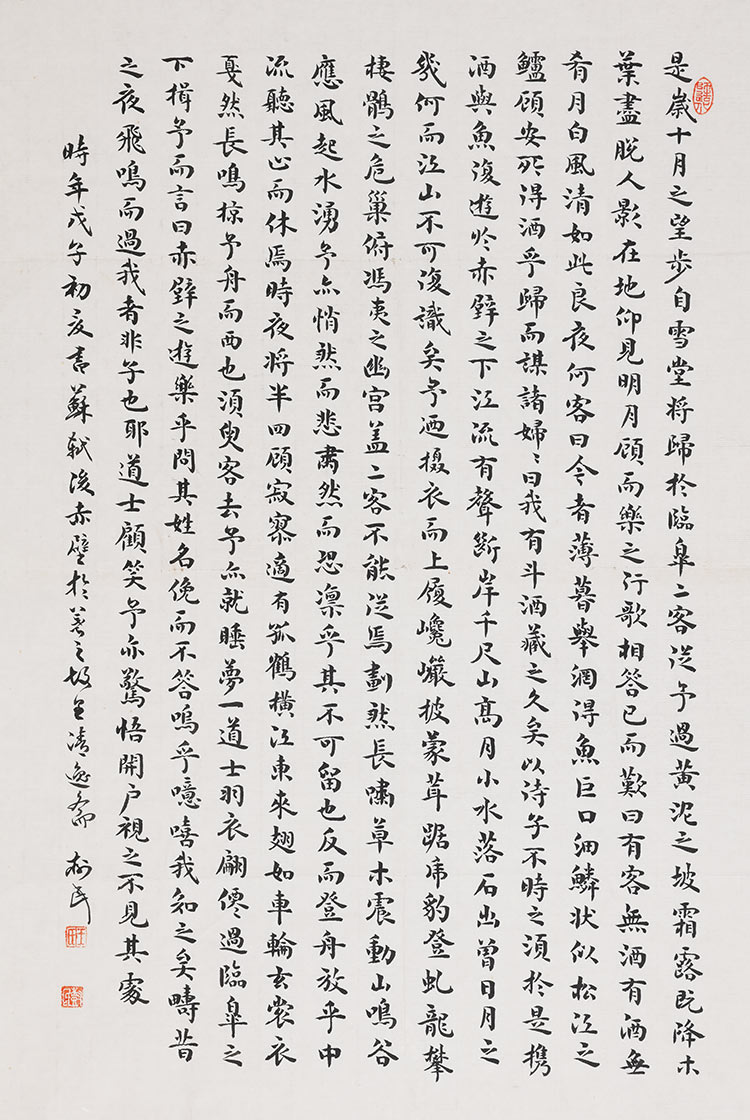 是歲十月之望步自雪堂将歸於臨皋二客從予過黃泥之坡霜露既降木
葉盡脫人影在地仰見明月顧而樂之行歌相答已而歎曰有客無酒有酒無
肴月白風清如此良夜何客曰今者薄暮舉網得魚巨口細鱗狀似松江之
鱸顧安所得酒乎歸而謀諸婦〻曰我有斗酒藏之久矣以待子不時之須於是携
酒與魚復遊於赤壁之下江流有聲斷岸千尺山高月小水落石出曾日月之
幾何而江山不可復識矣予迺攝衣而上履巉巖披蒙茸踞虎豹登虬龍攀
棲鶻之危巢俯馮夷之幽宮蓋二客不能從焉劃然長嘯草木震動山鳴谷
應風起水湧予亦悄然而悲肅然而恐凛乎其不可留也反而登舟放乎中
流聽其止而休焉時夜將半四顧寂寥適有孤鶴橫江東來翅如車輪玄裳衣
戛然長鳴掠予舟而西也須臾客去予亦就睡夢一道士羽衣翩僊過臨皋之
下揖予而言曰赤壁之遊樂乎問其姓名俛而不答嗚乎噫嘻我知之矣疇昔
之夜飛鳴而過我者非子也耶道士顧笑予亦驚悟開户視之不見其處
時年戊子初夏書蘇軾後赤壁於之故里清逸齋 樹民